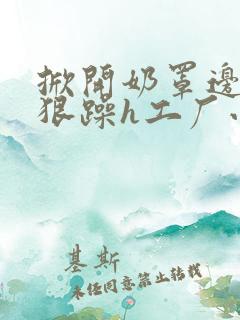 掀開奶罩邊
狠躁h工厂、
基斯
未经同意禁止转载